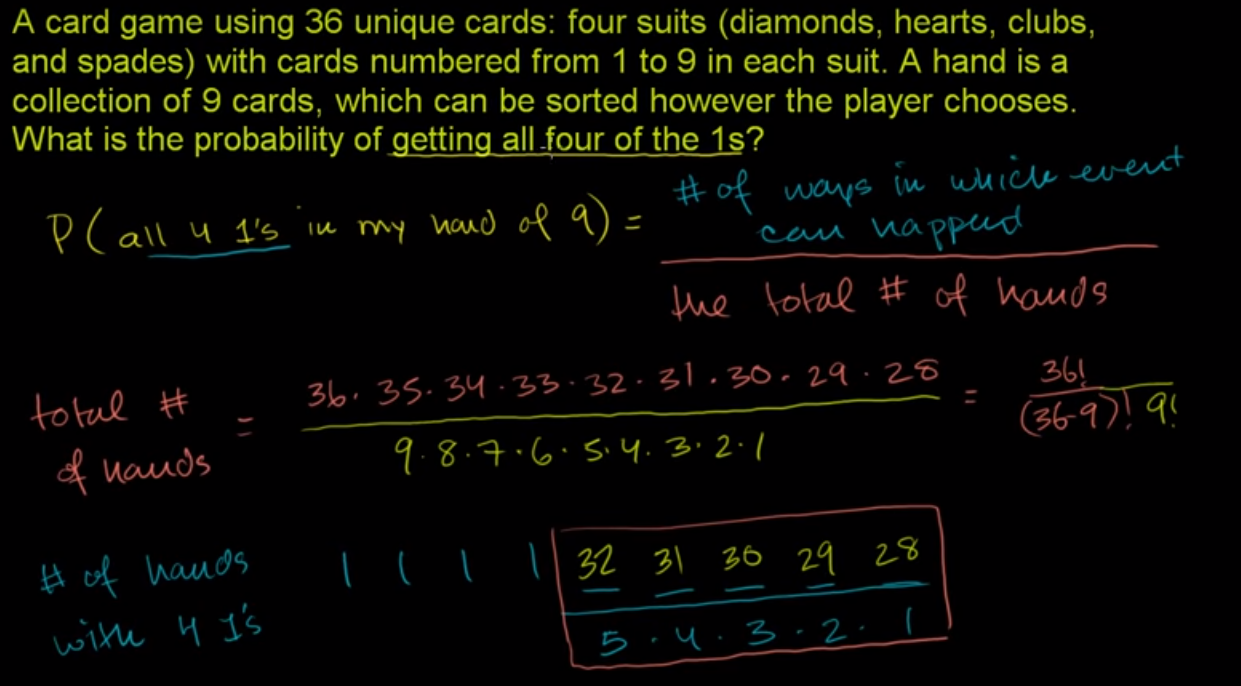 A card game using 36 unique cards: four suits (diamonds, hearts, clubs,
and spades) with cards numbered from 1 to 9 in each suit. A hand is a
collection of 9 cards, which can be sorted however the player chooses.
What is the probability of getting all four of the 1s?
P(all 4 1's in my hand of 9) =
# of ways in which event
can happen
the total # of hands
total #
of hands
=
36·35·34·33·32·31·30·29·28
9·8·7·6·5·4·3·2·1
=
36!
(36-9)! 9!
# of hands
with 4 1's
1 1 1 1
32 31 30 29 28
5·4·3·2·1